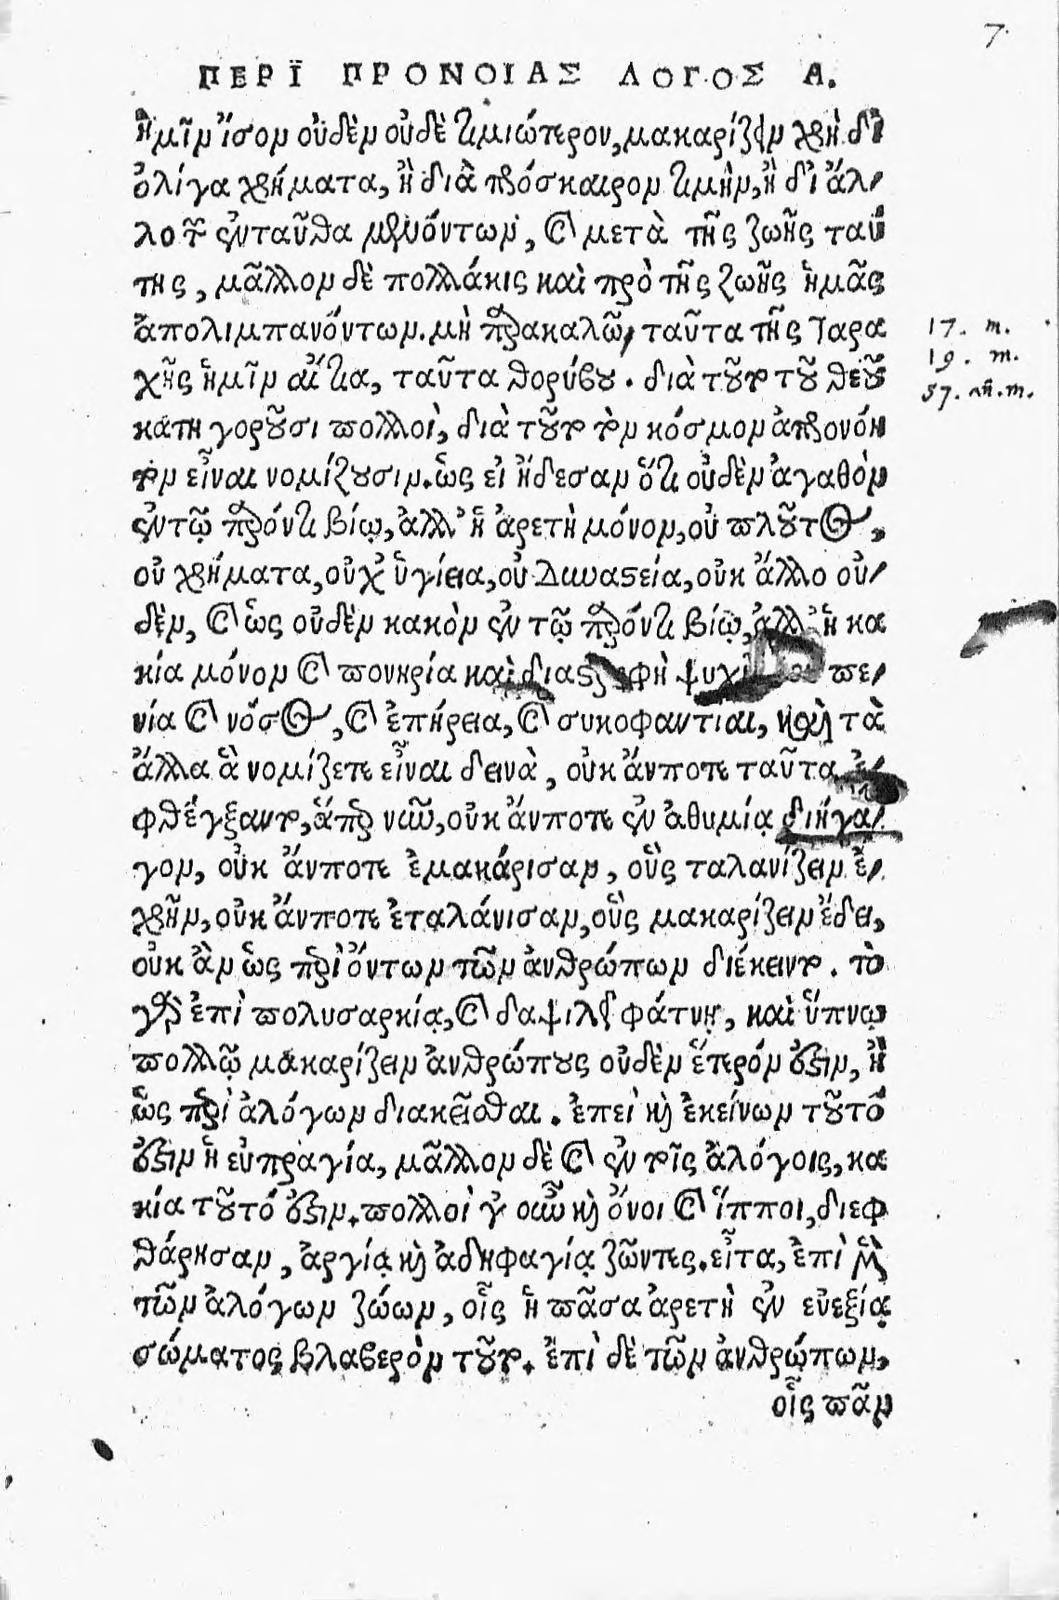 7.
ΠΕΡῚ ΠΡΟΝΟΙΑΣ ΛΟΓΟΣ Α.
ἡμῖν ἴσον οὐδὲν οὐδὲ τιμιώτερον, μακαρίζειν χρὴ δι
ὀλίγα χρήματα, ἢ διὰ πρόσκαιρον τιμὴν, ἢ δι ἄλ
λο τῶν ἐνταῦθα μενόντων, καὶ μετὰ τῆς ζωῆς ταύ
της, μᾶλλον δὲ πολλάκις καὶ πρὸ τῆς ζωῆς ἡμᾶς
ἀπολιμπανόντων. μὴ παρακαλῶ, ταῦτα τῆς ταρα
χῆς ἡμῖν αἴτια, ταῦτα θορύβου. διὰ τοῦτο τοῦ θεοῦ
κατηγοροῦσι πολλοὶ, διὰ τοῦτο τὸν κόσμον ἀπρονόη
τον εἶναι νομίζουσιν. ὡς εἰ ᾔδεσαν ὅτι οὐδὲν ἀγαθὸν
ἐν τῷ παρόντι βίῳ, ἀλλ' ἢ ἀρετὴ μόνον, οὐ πλοῦτος,
οὐ χρήματα, οὐχ ὑγίεια, οὐ δυναστεία, οὐκ ἄλλο οὐ
δὲν, καὶ ὡς οὐδὲν κακὸν ἐν τῷ παρόντι βίῳ, ἀλλ' ἢ κα
κία μόνον καὶ πονηρία καὶ διαστροφὴ πε
νία καὶ νόσος, καὶ ἐπήρεια, καὶ συκοφαντιαι, καὶ τὰ
ἄλλα ἃ νομίζετε εἶναι δεινὰ, οὐκ ἄνποτε ταῦτα ἐ
φθέγξαντο, ἅπερ νῦν, οὐκ ἄνποτε ἐν ἀθυμίᾳ διῆγα
γον, οὐκ ἄνποτε ἐμακάρισαν, οὓς ταλανίζειν ἐ
χρῆν, οὐκ ἄνποτε ἐταλάνισαν, οὓς μακαρίζειν ἔδει,
οὐκ ἂν ὡς περὶ ὄντων τῶν ἀνθρώπων διέκειντο. τὸ
γὰρ ἐπὶ πολυσαρκίᾳ, καὶ δαψιλεῖ φάτνῃ, καὶ ὕπνῳ
πολλῷ μακαρίζειν ἀνθρώπους οὐδὲν ἕτερόν ἐστιν, ἢ
ὡς περὶ ἀλόγων διακεῖσθαι. ἐπεὶ καὶ ἐκείνων τοῦτό
ἐστιν ἡ εὐπραγία, μᾶλλον δὲ καὶ ἐν τοῖς ἀλόγοις, κα
κία τοῦτό ἐστιν. πολλοὶ γοῦν καὶ ὄνοι καὶ ἵπποι, διεφ
θάρησαν, ἀργίᾳ καὶ ἀδηφαγίᾳ ζῶντες. εἶτα, ἐπὶ μὲν
τῶν ἀλόγων ζώων, οἷς ἡ πᾶσα ἀρετὴ ἐν εὐεξίᾳ
σώματος βλαβερὸν τοῦτο. ἐπὶ δὲ τῶν ἀνθρώπων,
οἷς πᾶν
17. m.
19. m.